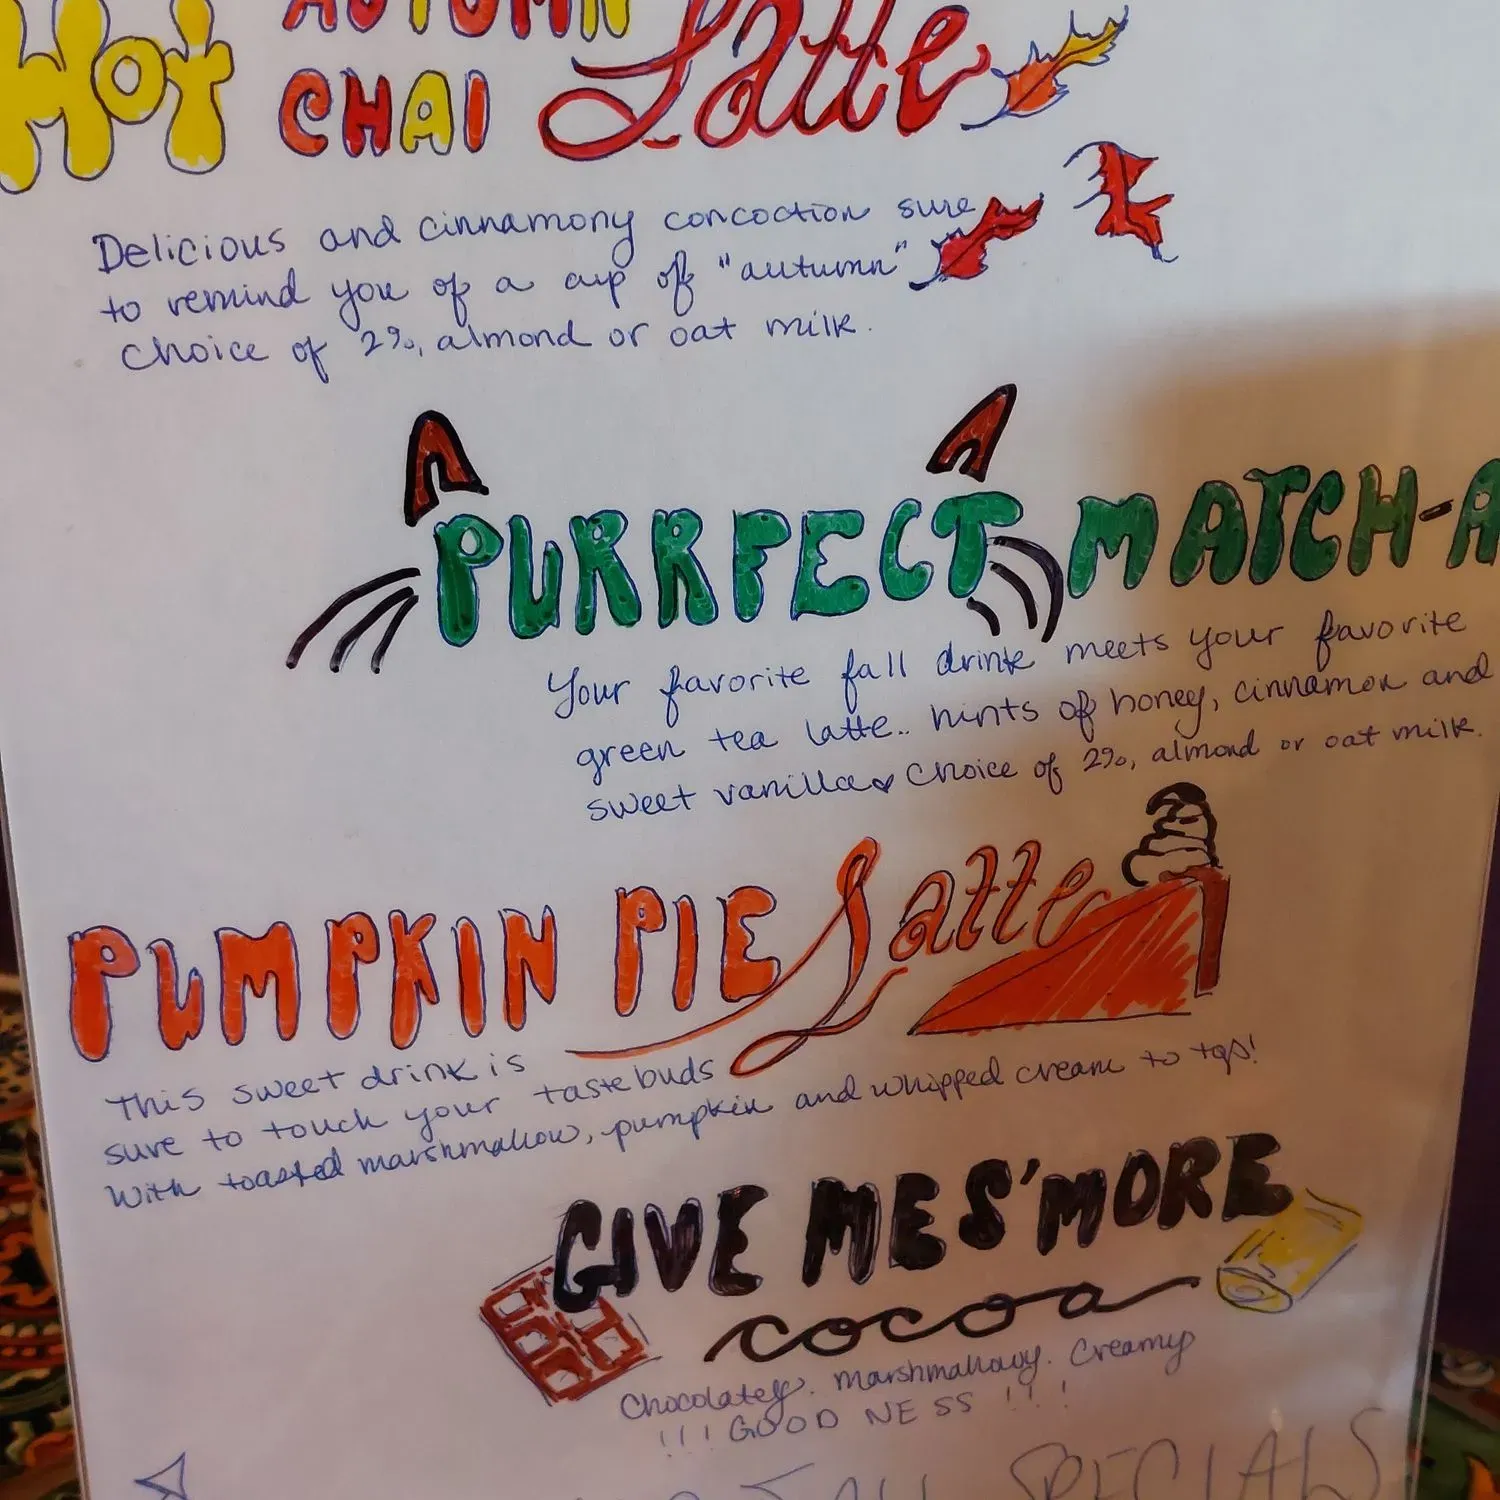 HOT AUTUMN CHAI Latte
Delicious and cinnamony concoction sure
to remind you of a cup of "autumn"
Choice of 2%, almond or oat milk.
PURRFECT MATCH-A
Your favorite fall drink meets your favorite
green tea latte.. hints of honey, cinnamon and
sweet vanilla Choice of 2%, almond or oat milk.
PUMPKIN PIE Latte
This sweet drink is
sure to touch your tastebuds
with toasted marshmallow, pumpkin and whipped cream to top!
GIVE ME S'MORE
cocoa
Chocolatey. Marshmallowy. Creamy
!!! GOODNESS !!!
FALL SPECIALS